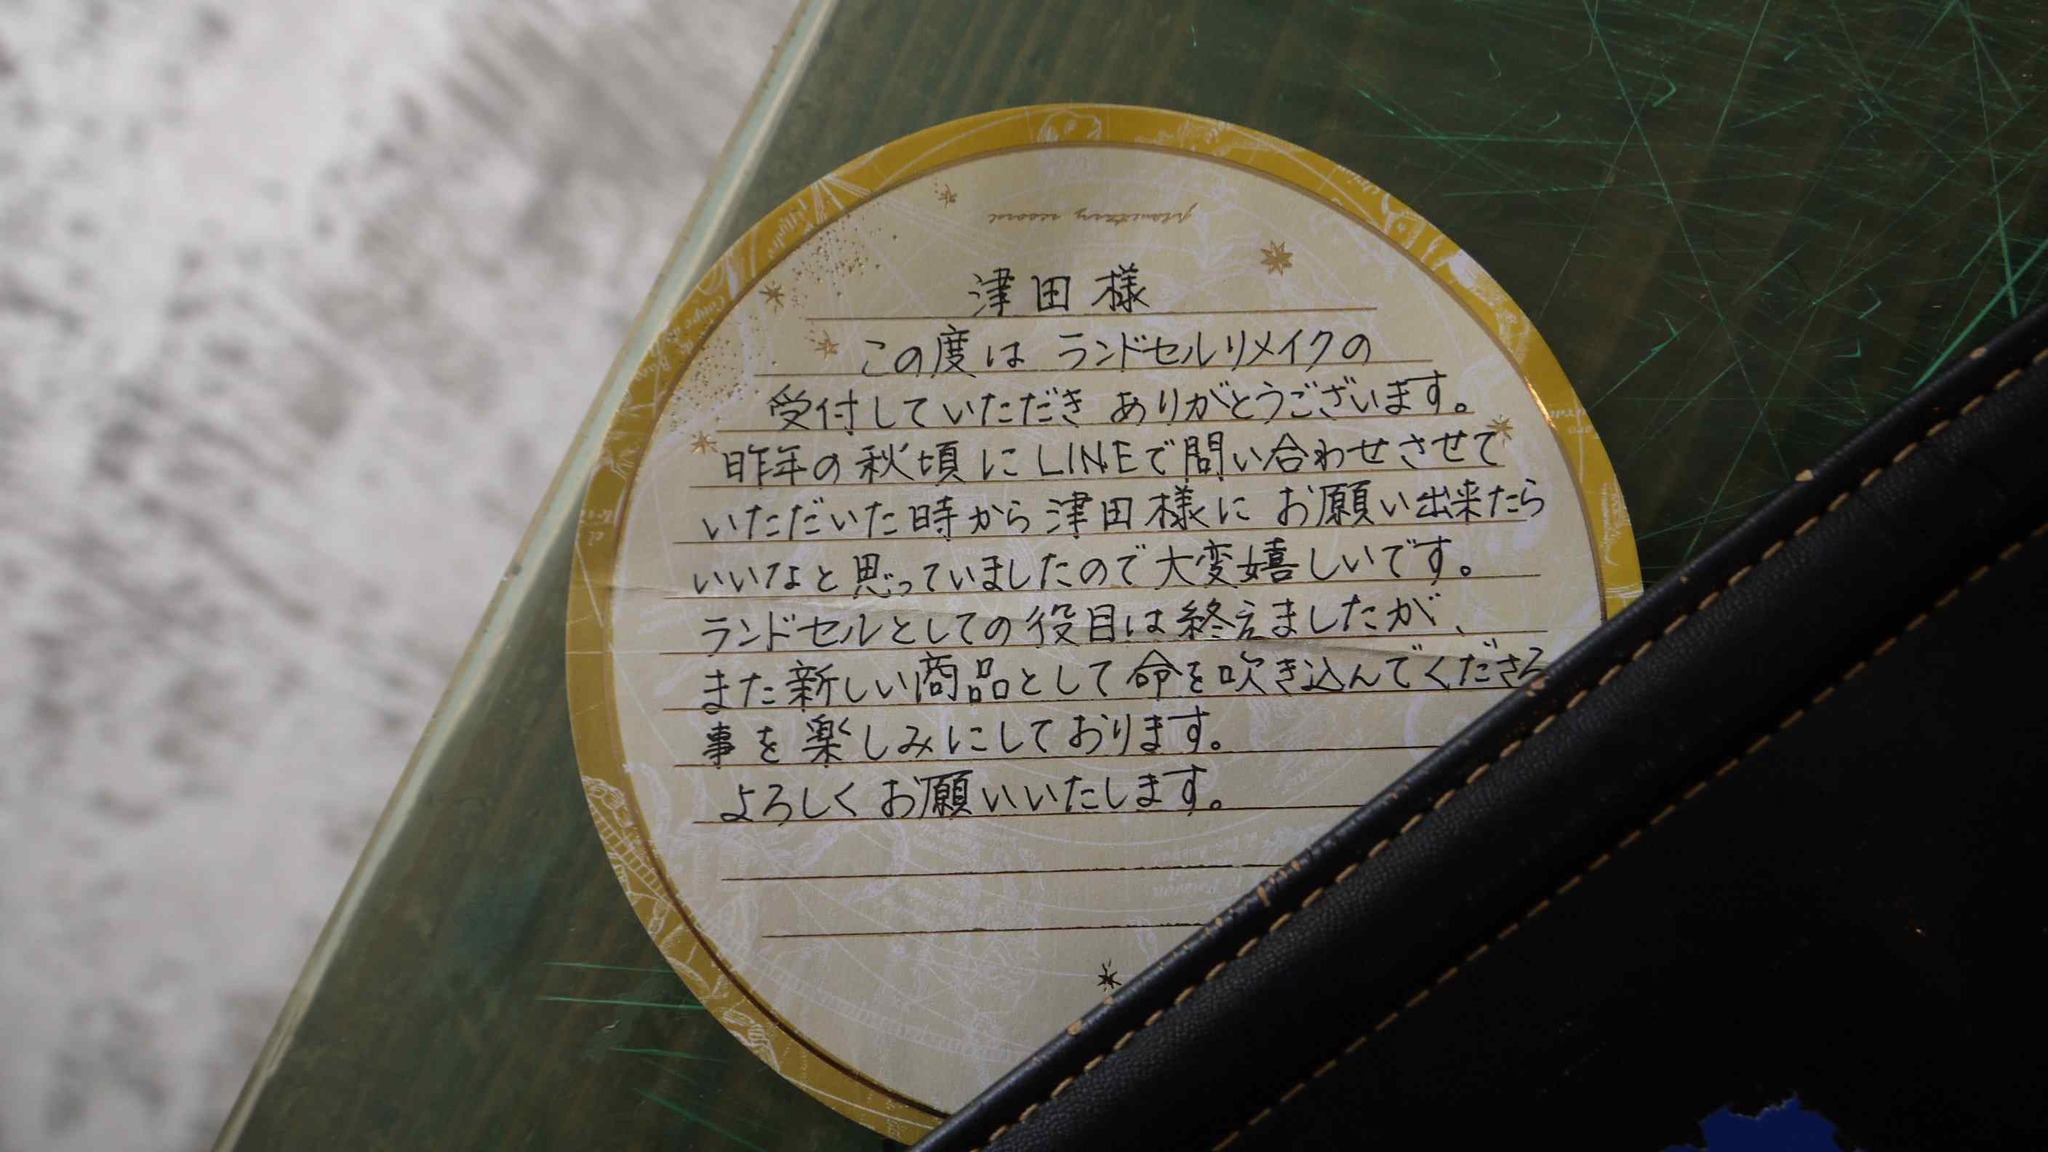 planetary record
津田様
この度は ランドセルリメイクの
受付していただき ありがとうございます。
昨年の秋頃にLINEで問い合わせさせて
いただいた時から津田様に お願い出来たら
いいなと思っていましたので大変嬉しいです。
ランドセルとしての役目は終えましたが、
また新しい商品として命を吹き込んでくださる
事を楽しみにしております。
よろしくお願いいたします。